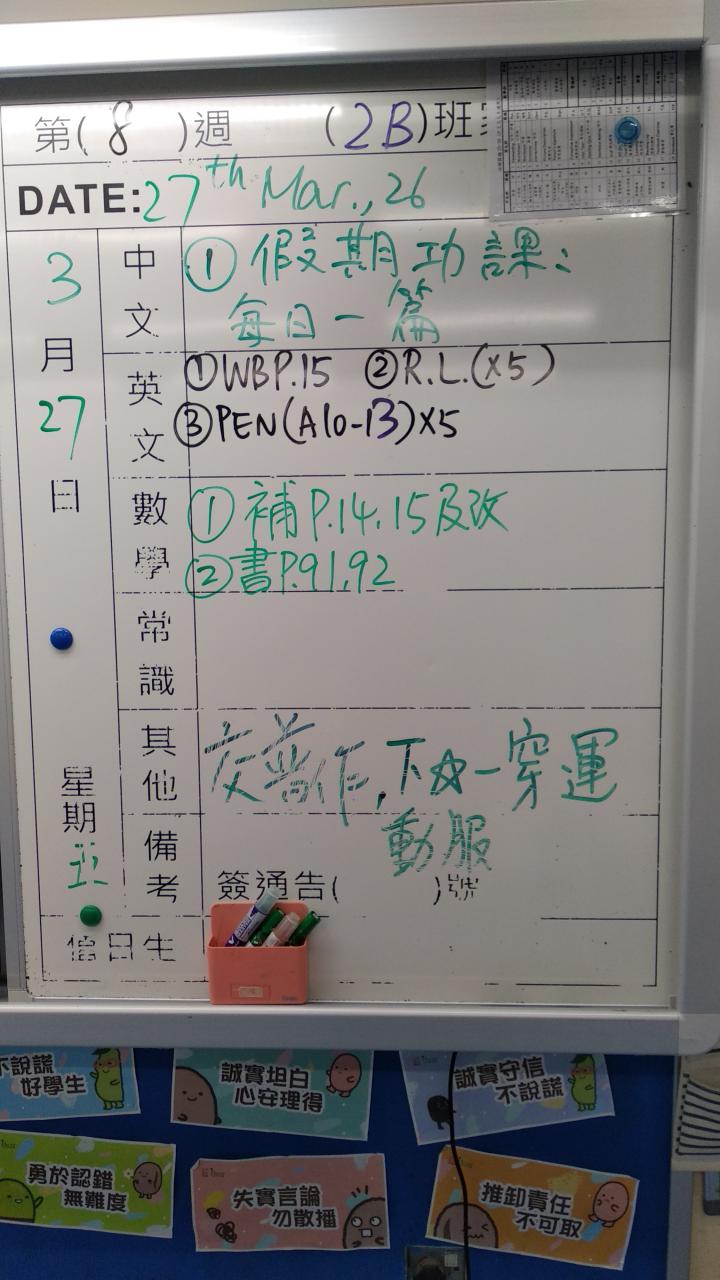 第( 8 )週 (2B)班
DATE: 27th Mar., 26
3月27日 星期五
中文
① 假期功課:
每日一篇
英文
①WBP.15 ②R.L.(x5)
③PEN(A10-13)x5
數學
① 補P.14.15及改
②書P.91,92
常識
其他
交普作,下☆一穿運
動服
備考
簽通告( )號
值日生
不說謊
好學生
誠實坦白
心安理得
誠實守信
不說謊
勇於認錯
無難度
失實言論
勿散播
推卸責任
不可取